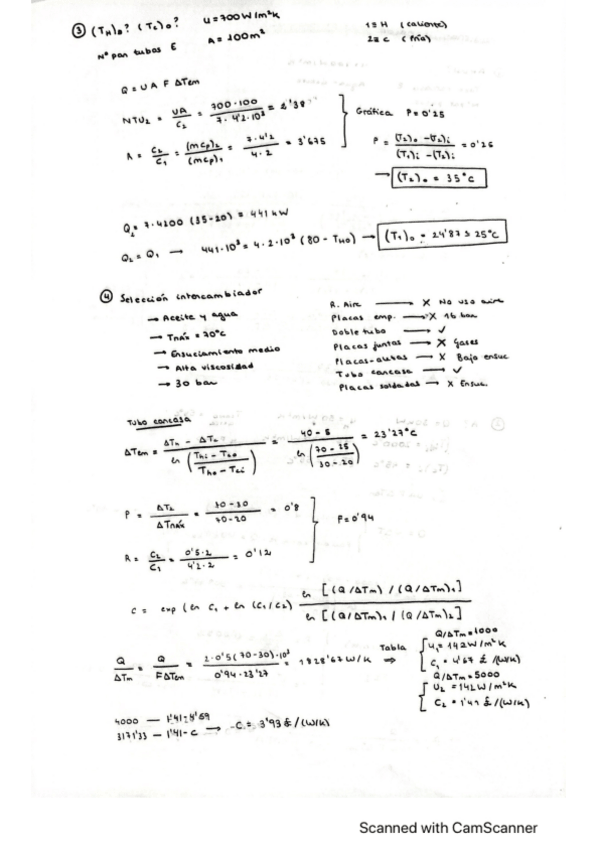 ③ (T_H)o? (Tc)o? U = 700 W/m²K 1 ≡ H (caliente)
Nº par tubos E A = 100m² 2 ≡ C (fría)
Q = U A F ΔTem
NTU₂ = UA / C₂ = 700·100 / 7·4'2·10³ = 2'38
R = C₂ / C₁ = (mcp)₂ / (mcp)₁ = 7·4'2 / 4·2 = 3'675
Gráfica P = 0'25
P = (T₂)o - (T₂)i / (T₁)i - (T₂)i = 0'25
→ (T₂)o = 35°C
Q₂ = 7·4200 (35-20) = 441 kW
Q₂ = Q₁ → 441·10³ = 4·2·10³ (80 - T_HO) → (T₁)o = 24'87 ≃ 25°C
④ Selección intercambiador
→ Aceite y agua
→ Tmáx = 70°C
→ Ensuciamiento medio
→ Alta viscosidad
→ 30 bar
R. Aire → X No uso aire
Placas emp. → X 16 bar
Doble tubo → ✓
Placas juntas → X Gases
Placas-aletas → X Bajo ensuc
Tubo carcasa → ✓
Placas soldadas → X Ensuc.
Tubo carcasa
ΔTem = ΔT₁ - ΔT₂ / ln (Thi - Tco / Tho - Tci) = 40 - 5 / ln (70 - 25 / 30 - 20) = 23'27°C
P = ΔT₂ / ΔTmáx = 30 - 30 / 70 - 20 = 0'8
R = C₂ / C₁ = 0'5·2 / 4'2·2 = 0'12
F = 0'94
C = exp (ln C₁ + ln (C₁/C₂) ln [(Q/ΔTm) / (Q/ΔTm)₁] / ln [(Q/ΔTm)₁ / (Q/ΔTm)₂]
Q / ΔTm = Q / FΔTem = 2·0'5(70-30)·10³ / 0'94·23'27 = 1828'67 W/K ⇒ Tabla
Q/ΔTm = 1000
U₁ = 142 W/m²K
C₁ = 4'67 £/(W/K)
Q/ΔTm = 5000
U₂ = 142 W/m²K
C₂ = 1'41 £/(W/K)
3171'33 — 1'41-C → C = 3'93 £/(W/K)
Scanned with CamScanner